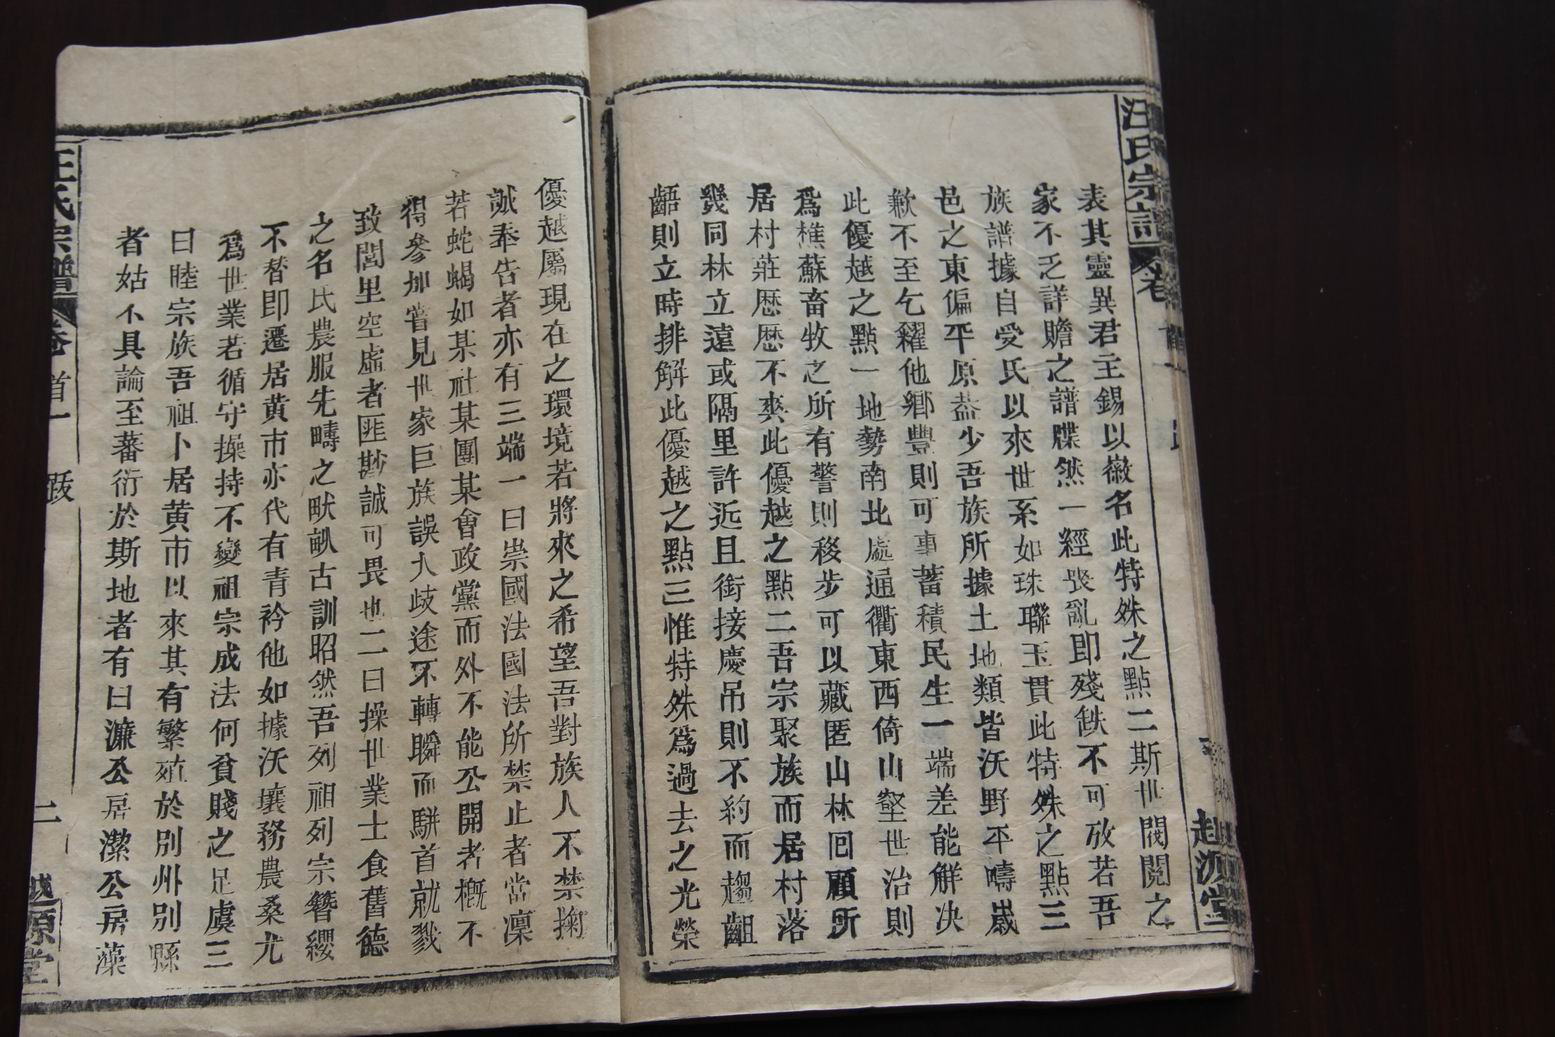 汪氏宗譜
卷首一
越源堂
表其靈異君主錫以徽名此特殊之點二斯世閥閱之
家不乏詳贍之譜牒然一經喪亂即殘缺不可攷若吾
族譜據自受氏以來世系如珠聯玉貫此特殊之點三
邑之東偏平原葢少吾族所據土地類皆沃野平疇歲
歉不至乞糴他鄉豐則可事蓄積民生一端差能解决
此優越之點一地勢南北處通衢東西倚山壑世治則
爲樵蘇畜牧之所有警則移步可以藏匿山林回顧所
居村莊歷歷不爽此優越之點二吾宗聚族而居村落
幾同林立遠或隔里許近且銜接慶吊則不約而趨齟
齬則立時排解此優越之點三惟特殊爲過去之光榮
優越屬現在之環境若將來之希望吾對族人不禁掬
誠奉告者亦有三端一曰崇國法國法所禁止者當凜
若蛇蝎如某社某團某會政黨而外不能公開者槪不
得參加嘗見世家巨族誤入歧途不轉瞬而駢首就戮
致閭里空虛者匪尠誠可畏也二曰操世業士食舊德
之名氏農服先疇之畎畝古訓昭然吾列祖列宗簪纓
不替即遷居黃市亦代有青衿他如據沃壤務農桑尤
爲世業若循守操持不變祖宗成法何貧賤之足虞三
曰睦宗族吾祖卜居黃市以來其有繁殖於別州別縣
者姑不具論至蕃衍於斯地者有曰濂公房潔公房藻
汪氏宗譜
卷首一
二
越源堂